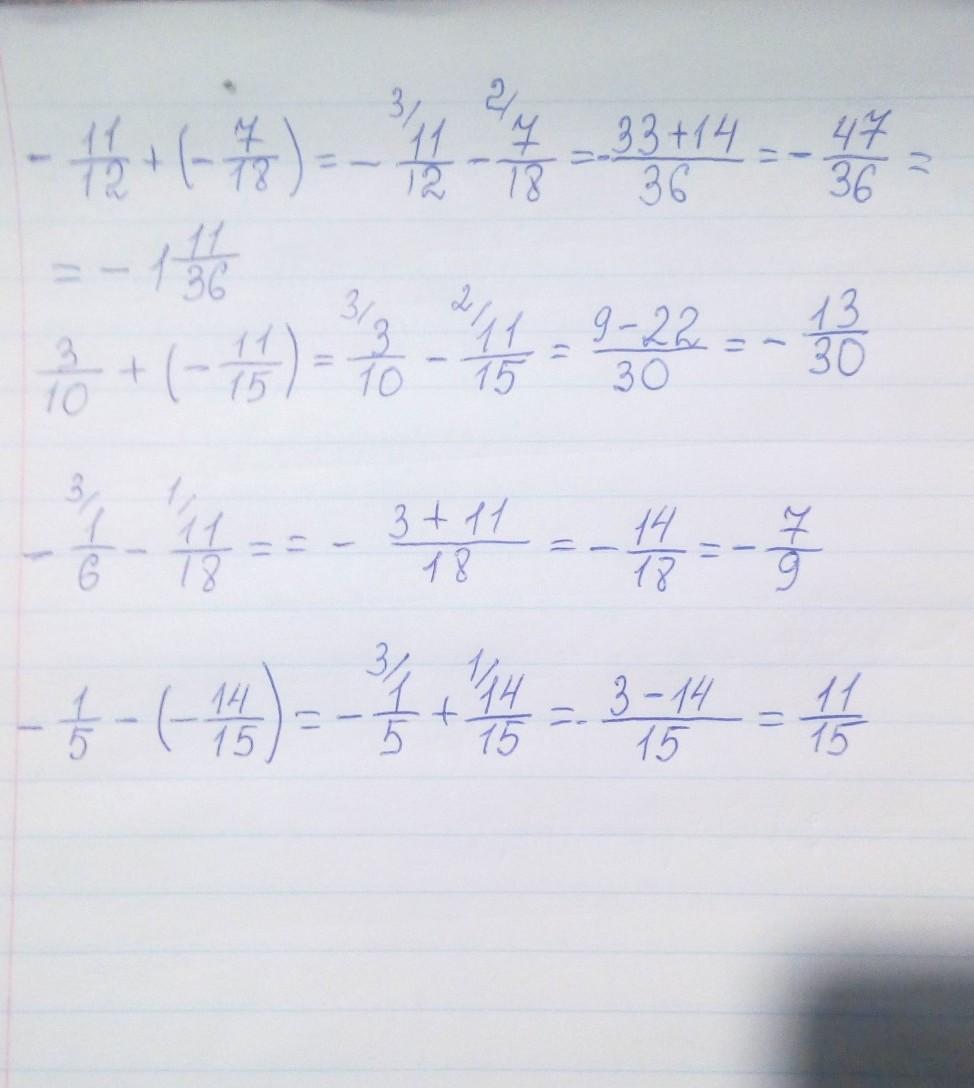 - 11/12 + (- 7/18) = - 3/ 11/12 - 2/ 7/18 = - 33+14/36 = - 47/36 =
= - 1 11/36
3/10 + (- 11/15) = 3/ 3/10 - 2/ 11/15 = 9-22/30 = - 13/30
- 3/ 1/6 - 1/ 11/18 = = - 3+11/18 = - 14/18 = - 7/9
- 1/5 - (- 14/15) = - 3/ 1/5 + 1/ 14/15 = - 3-14/15 = 11/15